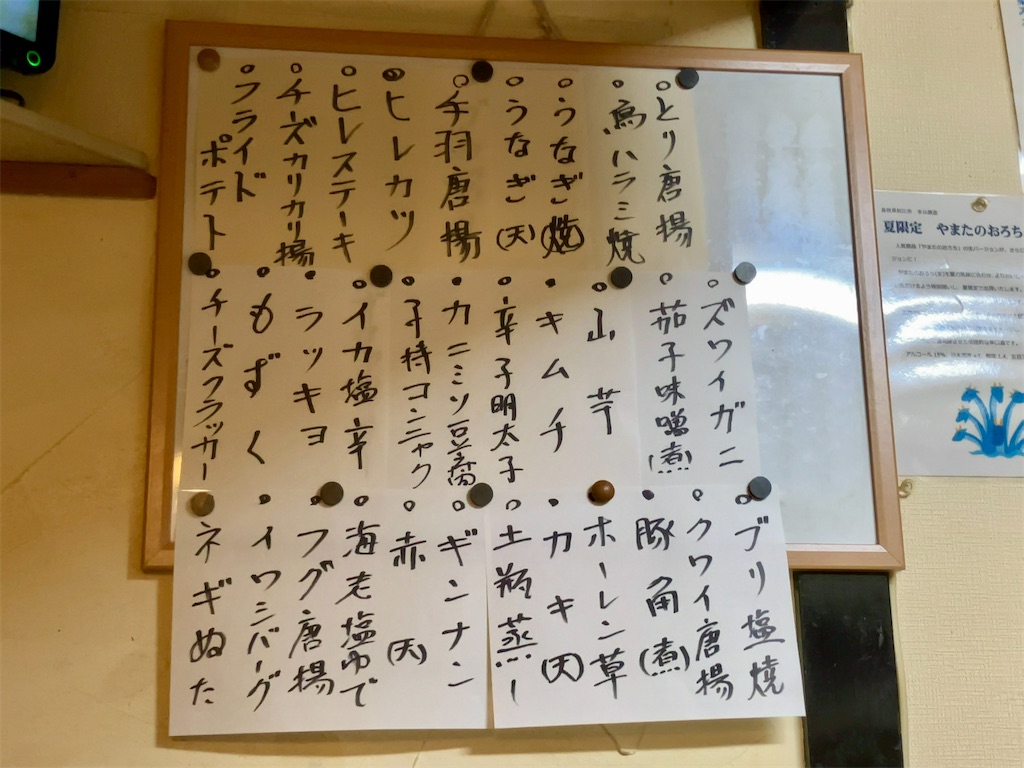 ○とり唐揚
○鳥ハラミ焼
○うなぎ(焼)
○うなぎ(天)
○手羽唐揚
○ヒレカツ
○ヒレステーキ
○チーズカリカリ揚
○フライドポテト
○ズワイガニ
○茄子味噌(煮)
○山芋
・キムチ
○辛子明太子
・カニミソ豆腐
○子持コンニャク
・イカ塩辛
・ラッキョ
・もずく
○チーズクラッカー
○ブリ塩焼
○クワイ唐揚
・豚角(煮)
○ホーレン草
・カキ(天)
○土瓶蒸し
○ギンナン
・赤(天)
○海老塩ゆで
○フグ唐揚
・イワシバーグ
ネギぬた
夏限定 やまたのおろち